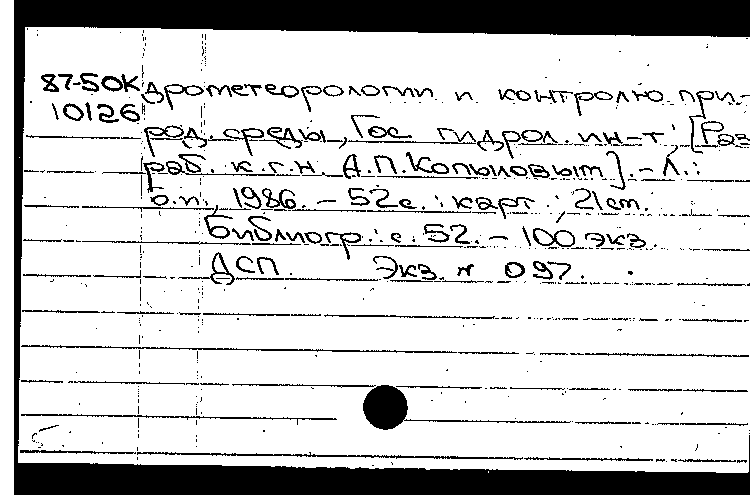 87-50К дрометеорологии и контролю при-
10126 род. среды, Гос. гидрол. ин-т; [Раз
раб. к.г.н. А.П.Копыловым]. - Л.:
б.и., 1986. - 52 с.: карт.; 21 см.
Библиогр.: с. 52. - 100 экз.
ДСП. Экз. № 097.